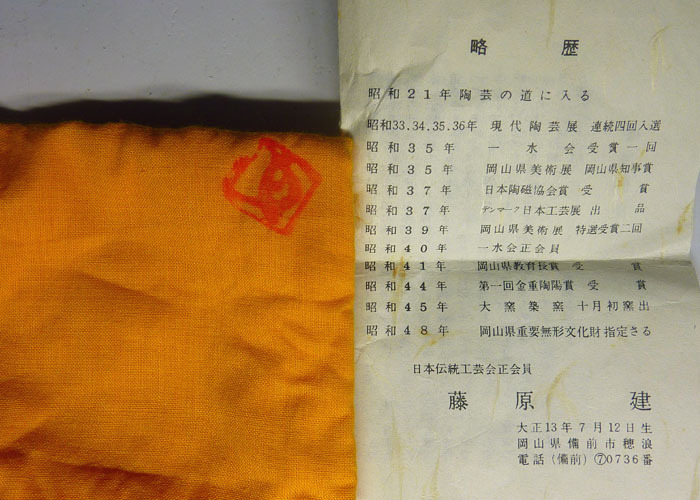 略歴
昭和21年陶芸の道に入る
昭和33.34.35.36年 現代陶芸展 連続四回入選
昭和35年 一水会受賞一回
昭和35年 岡山県美術展 岡山県知事賞
昭和37年 日本陶磁協会賞 受賞
昭和37年 デンマーク日本工芸展 出品
昭和39年 岡山県美術展 特選受賞二回
昭和40年 一水会正会員
昭和41年 岡山県教育長賞 受賞
昭和44年 第一回金重陶陽賞 受賞
昭和45年 大窯築窯 十月初窯出
昭和48年 岡山県重要無形文化財指定さる
日本伝統工芸会正会員
藤原建
大正13年7月12日生
岡山県備前市穂浪
電話(備前)⑦0736番